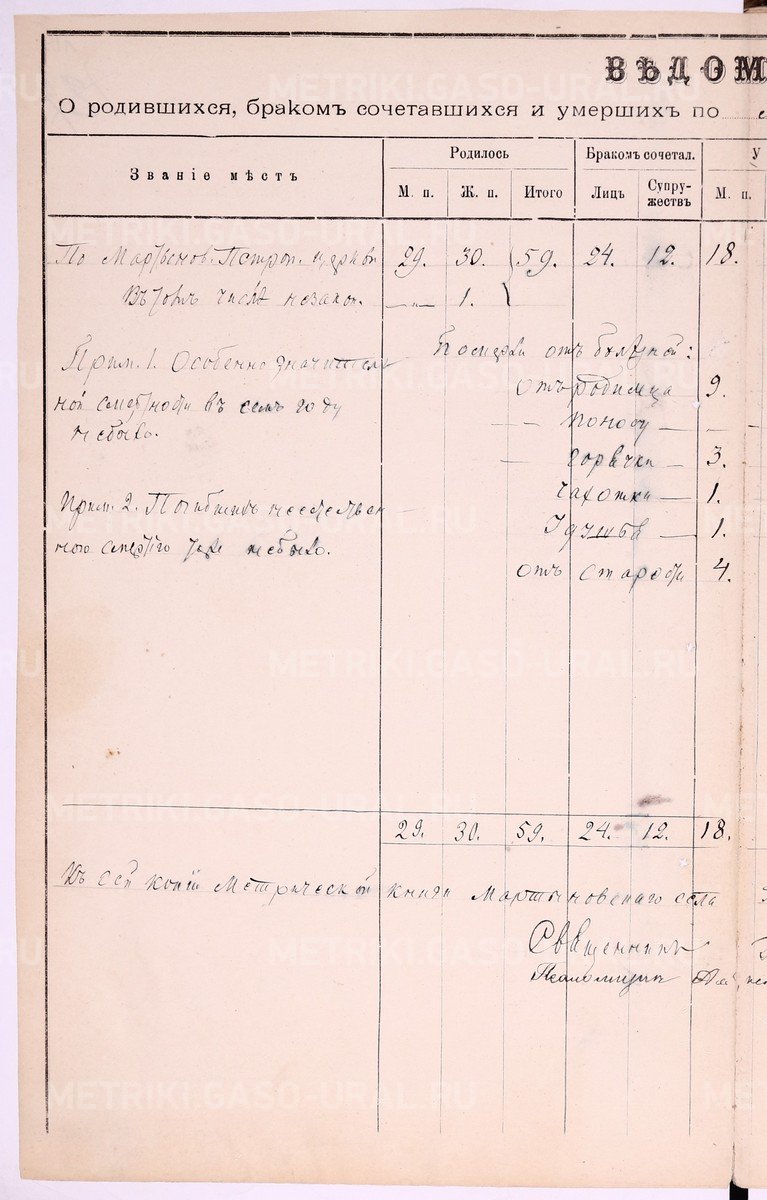 ВѢДОМ
О родившихся, бракомъ сочетавшихся и умершихъ по
Званіе мѣстъ
Родилось
Бракомъ сочетал.
У
М. п.
Ж. п.
Итого
Лицъ
Супру-
жествъ
М. п.
По Мартынов. Петроп. церкви 29. 30. 59. 24. 12. 18.
Въ томъ числѣ незакон. — 1.
Прим. 1. Особенно значитель
ной смертности въ семъ году
не было.
Прим. 2. Погибшихъ неестествен
ною смертію не было.
Померли отъ болѣзней:
отъ родимца 9.
— — поносу — —
— горячки — 3.
чахотки — 1.
удушья — 1.
отъ старости 4.
29. 30. 59. 24. 12. 18.
Къ сей копіи Метрической книги Мартыновскаго села
Священникъ
Псаломщикъ
METRIKI.GASO-URAL.RU